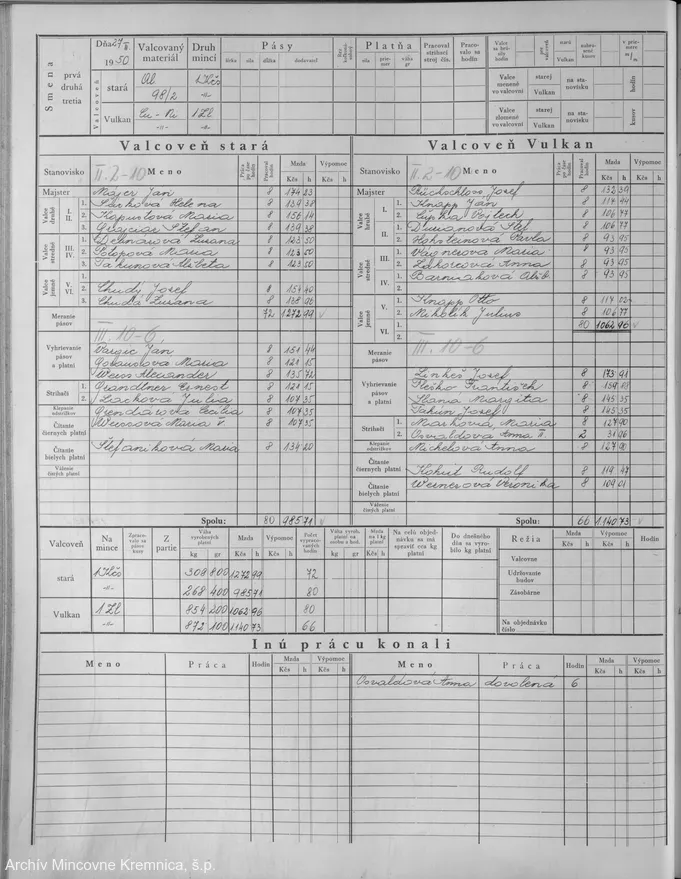 Smena
prvá
druhá
tretia
Dňa 27/II
1950
Valcovaný materiál
Druh mincí
Pásy
šírka sila dĺžka dodavateľ
Platňa
sila priemer váha gr
Pracoval strihací stroj čís.
Pracovalo sa hodín
Valcovňa
stará
Al 98/2
1 Kčs
-"-
Vulkan
Cu-Ni
-"-
1 Zl
-"-
Valce menené vo valcovni
starej
Vulkan
na stanovisku
Valce zlomené vo valcovni
starej
Vulkan
na stanovisku
hodín
kusov
Valcoveň stará
Stanovisko II. 2-10 Meno Mzda Kčs h Výpomoc Kčs h
Majster Majer Ján 8 174 23
Valce hrubé I. II.
1. Šarkóvá Helena 8 139 38
2. Kapustová Maria 8 156 14
3. Grajciar Štefan 8 139 38
Valce stredné III. IV.
1. Debnárová Zuzana 8 123 50
2. Maria 8 123 50
3. Alžbeta 8 123 50
Valce jemné V. VI.
1. Chudý Jozef 8 154 40
2. Chudá Zuzana 8 138 96
3.
Meranie pásov 72 1272 99 v
III. 10-6
Vyhrievanie pásov a platní
Vargic Ján 8 151 44
Maria 8 121 15
Weiss Alexander 8 135 72
Strihači
1. Grandtner Ernest 8 121 15
2. Lacková Julia 8 107 35
Klepanie odstrižkov Grendárová Cecília 8 107 35
Čítanie čiernych platní Weissová Maria V. 8 107 35
Čítanie bielych platní Štefaniková Maria 8 134 20
Váženie čistých platní
Spolu: 80 985 71 v
Valcoveň Vulkan
Stanovisko II. 2-10 Meno Mzda Kčs h Výpomoc Kčs h
Majster Jozef 8 132 39
Valce hrubé
I.
1. Knapp Ján 8 117 44
2. Lupták Vojtech 8 106 77
II.
1. Durianová Štef. 8 106 77
2. Hohsteinová Pavla 8 93 95
Valce stredné
III.
1. Vágnerová Maria 8 93 95
2. Anna 8 93 95
IV.
1. Alžb. 8 93 95
2.
Valce jemné
V.
1. Knapp Otto 8 117 02
2. Nikolík Július 8 106 77
VI.
1. 80 1062 96 v
2.
Meranie pásov III. 10-6
Vyhrievanie pásov a platní
Linkeš Jozef 8 173 91
František 8 159 18
Slaná Margita 8 145 35
Jozef 8 145 35
Strihači
1. Murková Maria 8 127 90
2. Osvaldová Anna II 2 31 96
Klepanie odstrižkov Michelová Anna 8 127 90
Čítanie čiernych platní Kohút Rudolf 8 119 47
Čítanie bielych platní Wernerová Veronika 8 109 01
Váženie čistých platní
Spolu: 66 1140 73 v
Valcoveň
Na mince
Zpracovalo sa pásov kusy
Z partie
Váha vyrobených platní kg gr
Mzda Kčs h
Výpomoc Kčs h
Počet vypracovaných hodín
Váha vyrob. platní na osobu a hod. kg gr
Mzda na 1 kg platní Kčs h
Na celú objednávku sa má spraviť cca kg platní
Do dnešného dňa sa vyrobilo kg platní
Režia
Výpomoc Kčs h
Hodín
stará 1 Kčs 309 800 1272 99 72
-"- 268 400 985 71 80
Vulkan 1 Zl 854 200 1062 96 80
-"- 872 100 1140 73 66
Valcovne
Udržovanie budov
Zásobárne
Na objednávku číslo
Inú prácu konali
Meno Práca Hodín Mzda Kčs h Výpomoc Kčs h
Meno Práca Hodín Mzda Kčs h Výpomoc Kčs h
Osvaldová Anna dovolená 6
Archív Mincovne Kremnica, š.p.